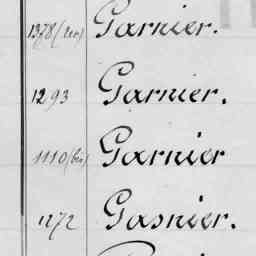 1378 (ter) Garnier.
1293 Garnier.
1110 (bis) Garnier
1272 Gasnier.